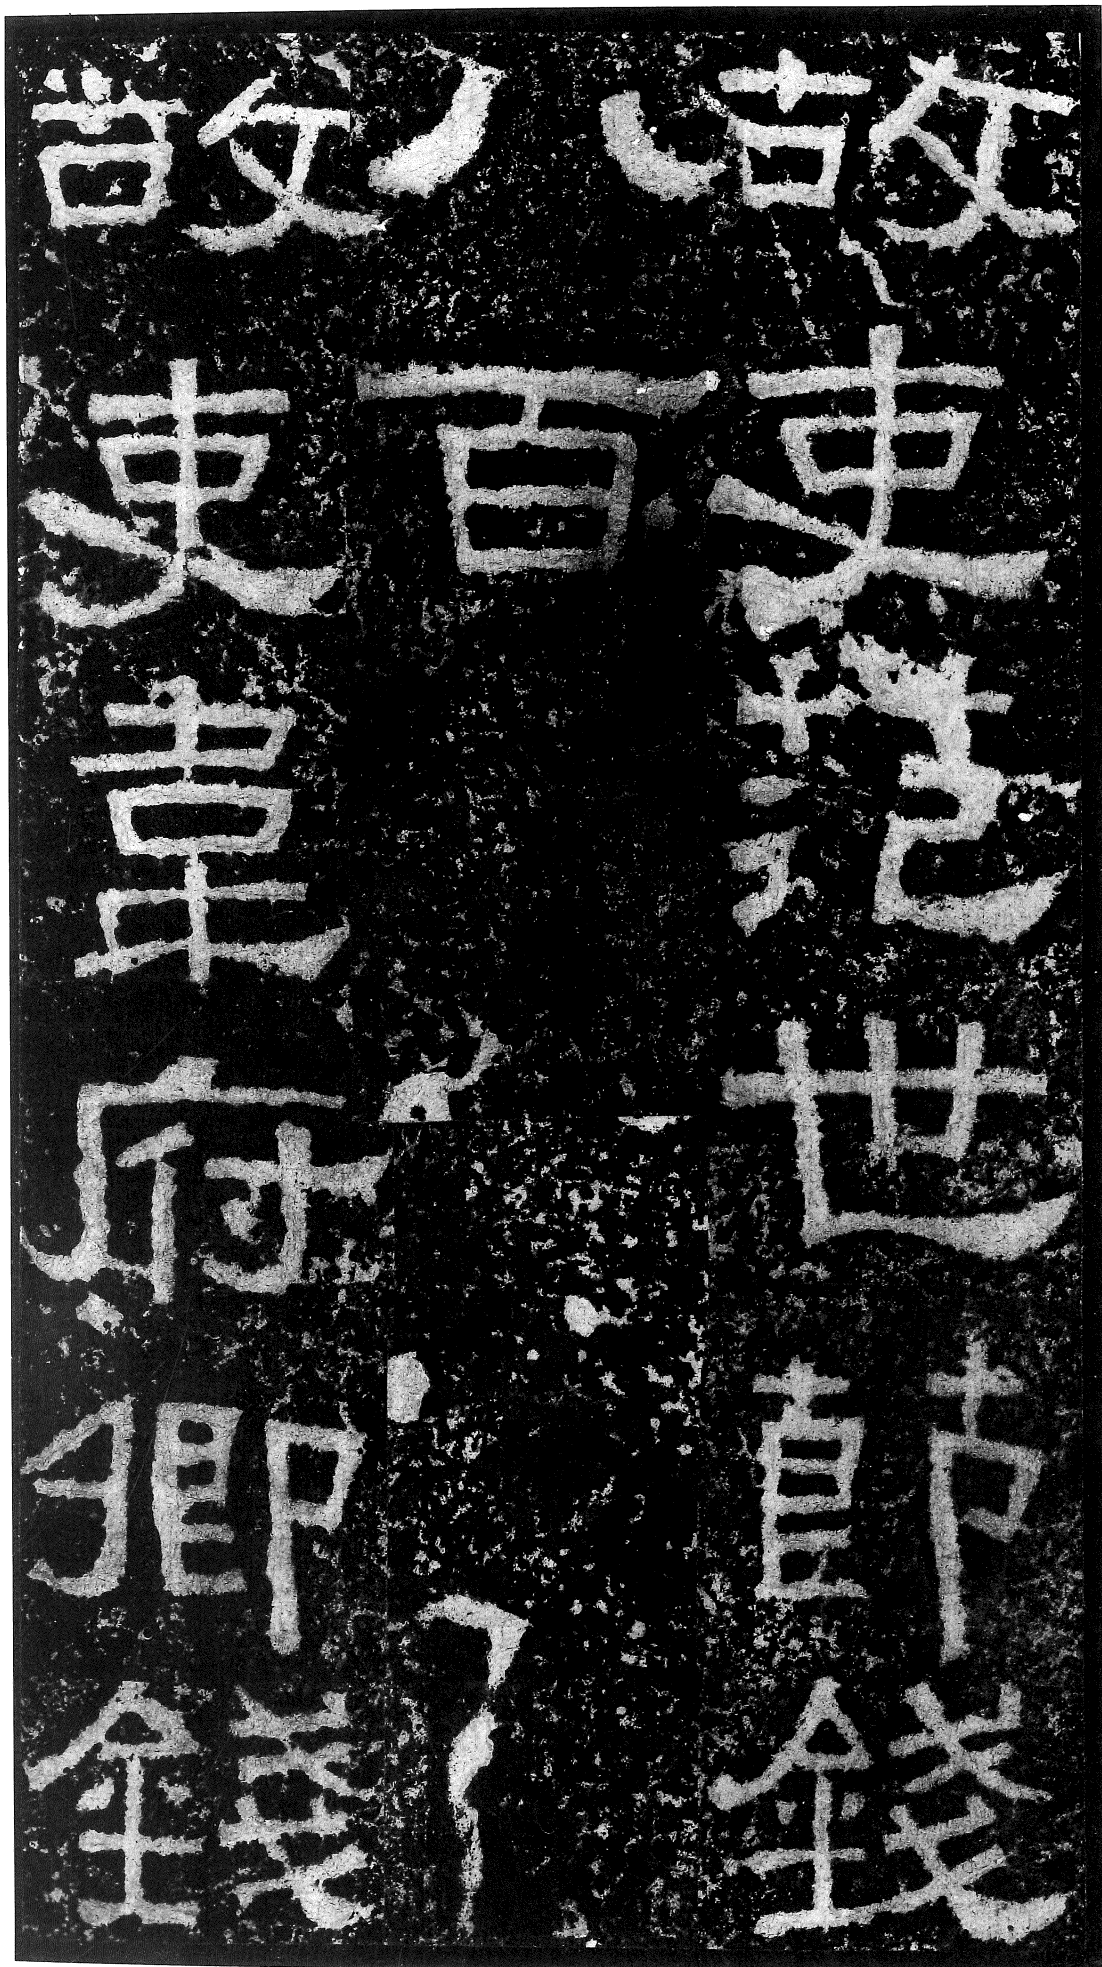 故吏范世節錢
八百
故吏韋府卿錢